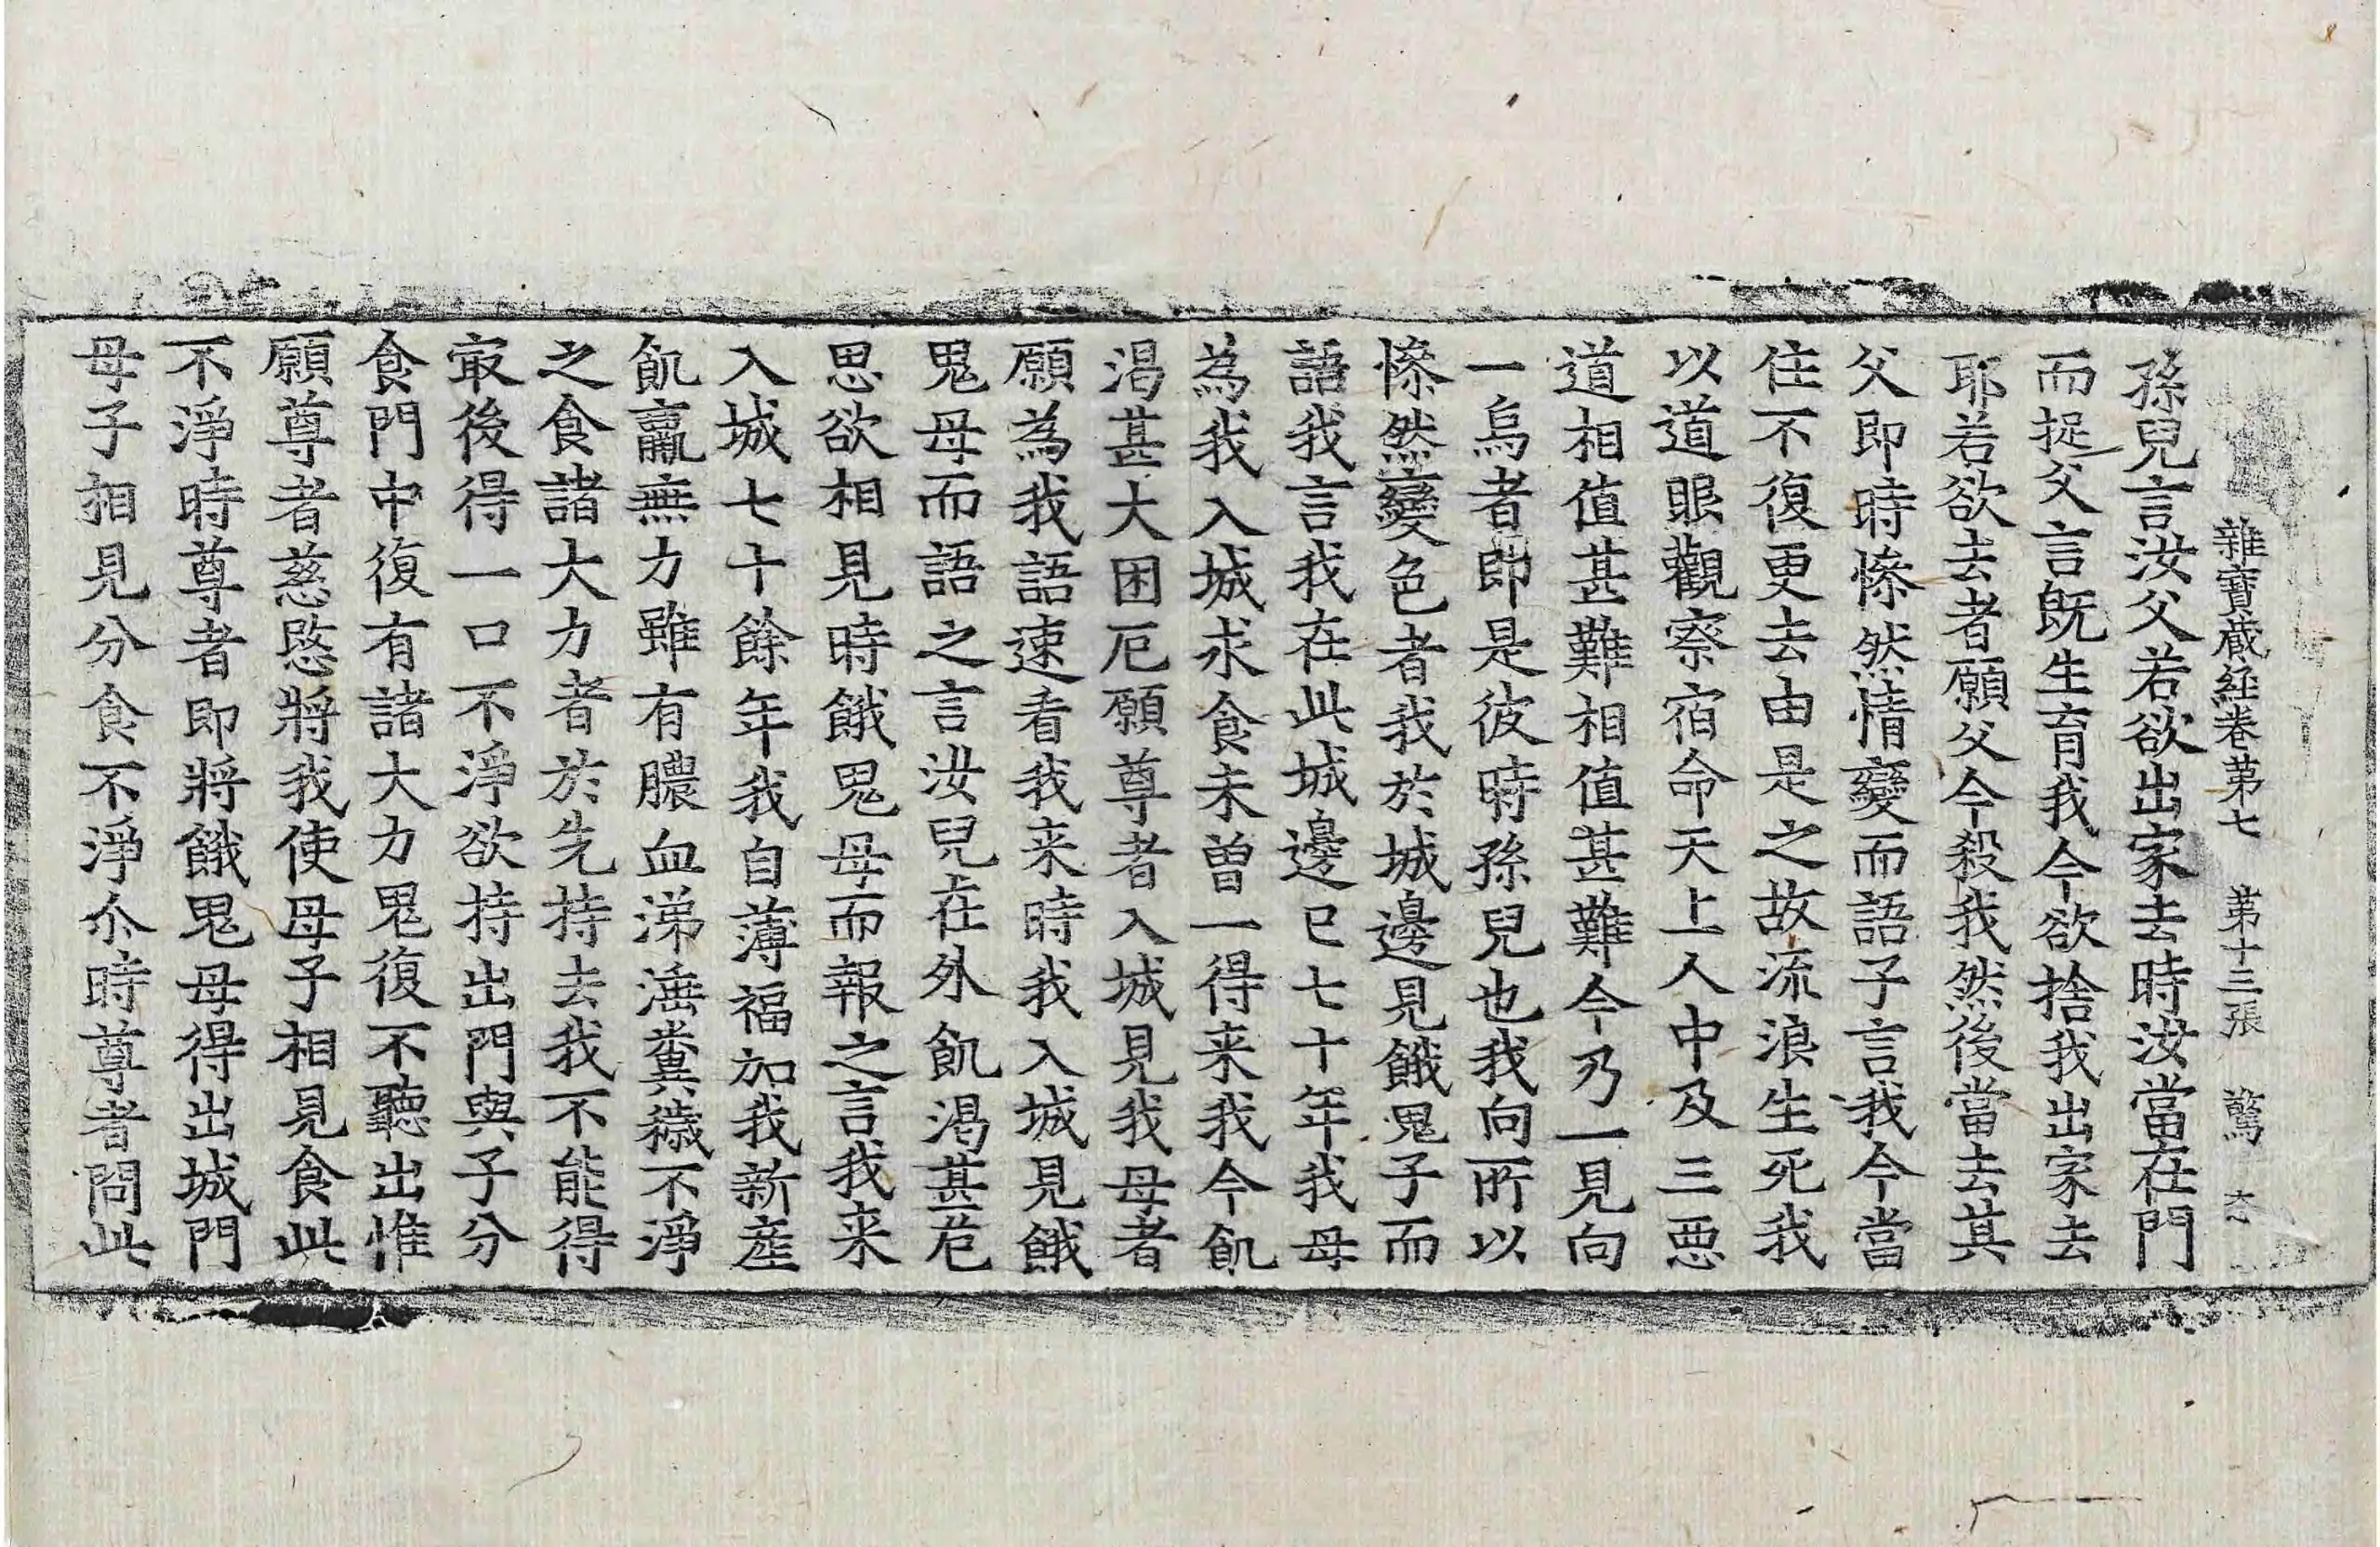 雜寶蔵経卷第七 第十三張 驚
孫兒言汝父若欲出家去時汝當在門
而捉父言既生育我今欲捨我出家去
耶若欲去者願父今殺我然後當去其
父即時慘然情變而語子言我今當
住不復更去由是之故流浪生死我
以道眼觀察宿命天上人中及三惡
道相值甚難相值甚難今乃一見向
一烏者即是彼時孫兒也我向所以
慘然變色者我於城邊見餓鬼子而
語我言我在此城邊已七十年我母
為我入城求食未曾一得来我今飢
渴甚大困厄願尊者入城見我母者
願為我語速看我来時我入城見餓
鬼母而語之言汝兒在外飢渴甚危
思欲相見時餓鬼母而報之言我来
入城七十餘年我自薄福加我新產
飢羸無力雖有膿血涕洟糞穢不淨
之食諸大力者於先持去我不能得
㝡後得一口不淨欲持出門與子分
食門中復有諸大力鬼復不聽出惟
願尊者慈愍將我使母子相見食此
不淨時尊者即將餓鬼母得出城門
母子相見分食不淨尒時尊者問此